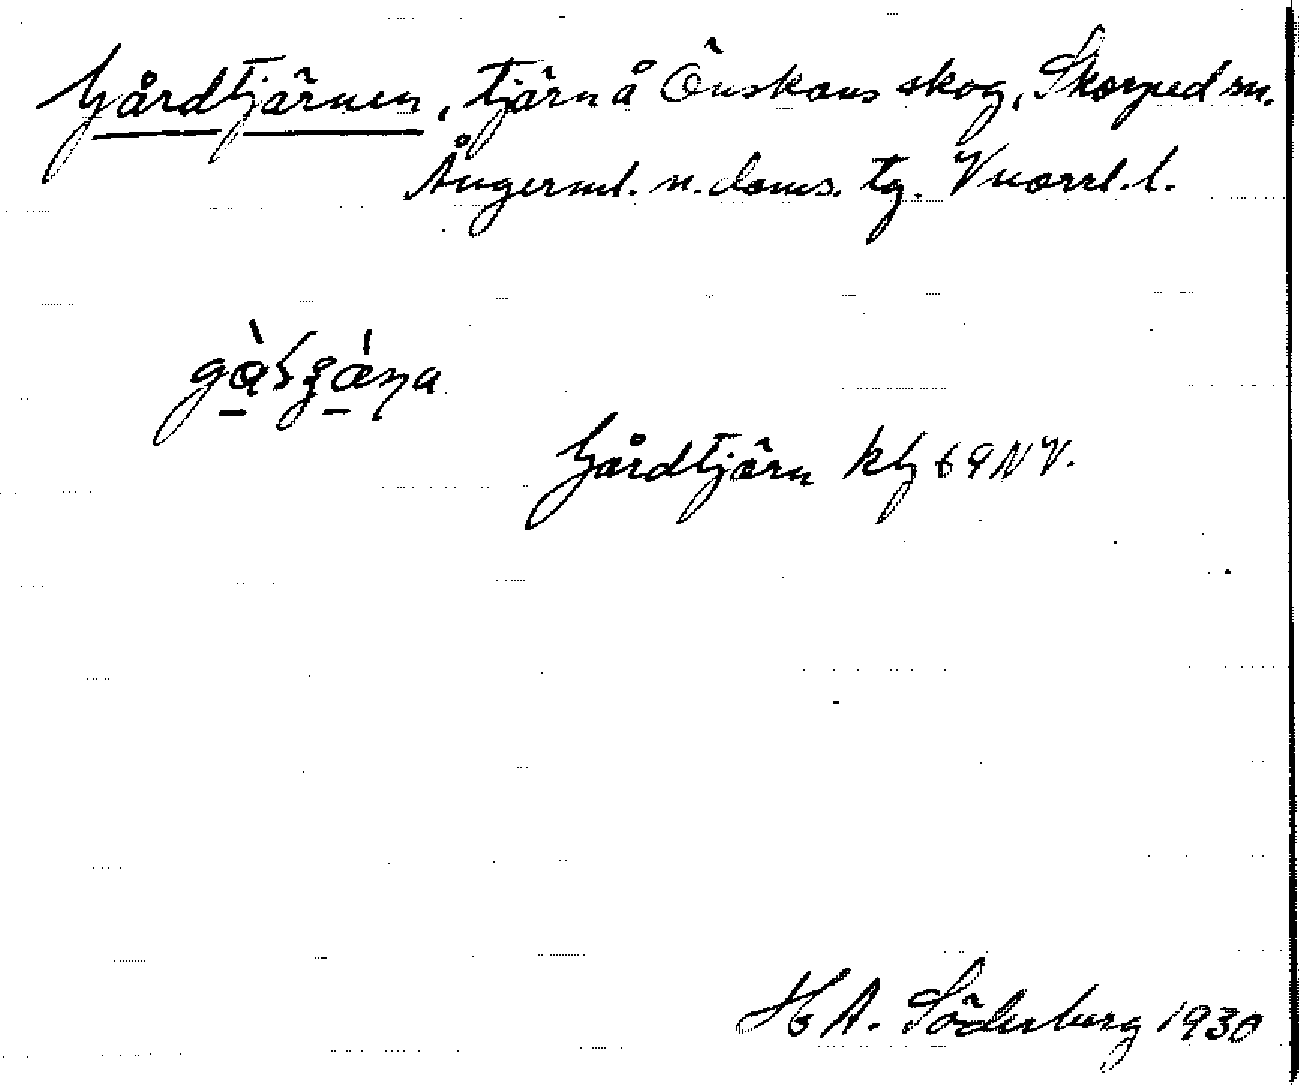 Gårdtjärnen, tjärn å Önskans skog, Skorped sn.
Ångerml. n. doms. tg. Vnorrl. l.
Gårdtjärn kbl 69 NV.
H A. Söderberg 1930